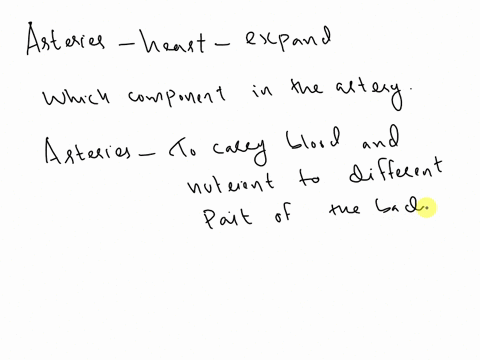 Arteries - heart - expand
Which component in the artery.
Arteries - To carry blood and
nutrient to different
Part of the bad.